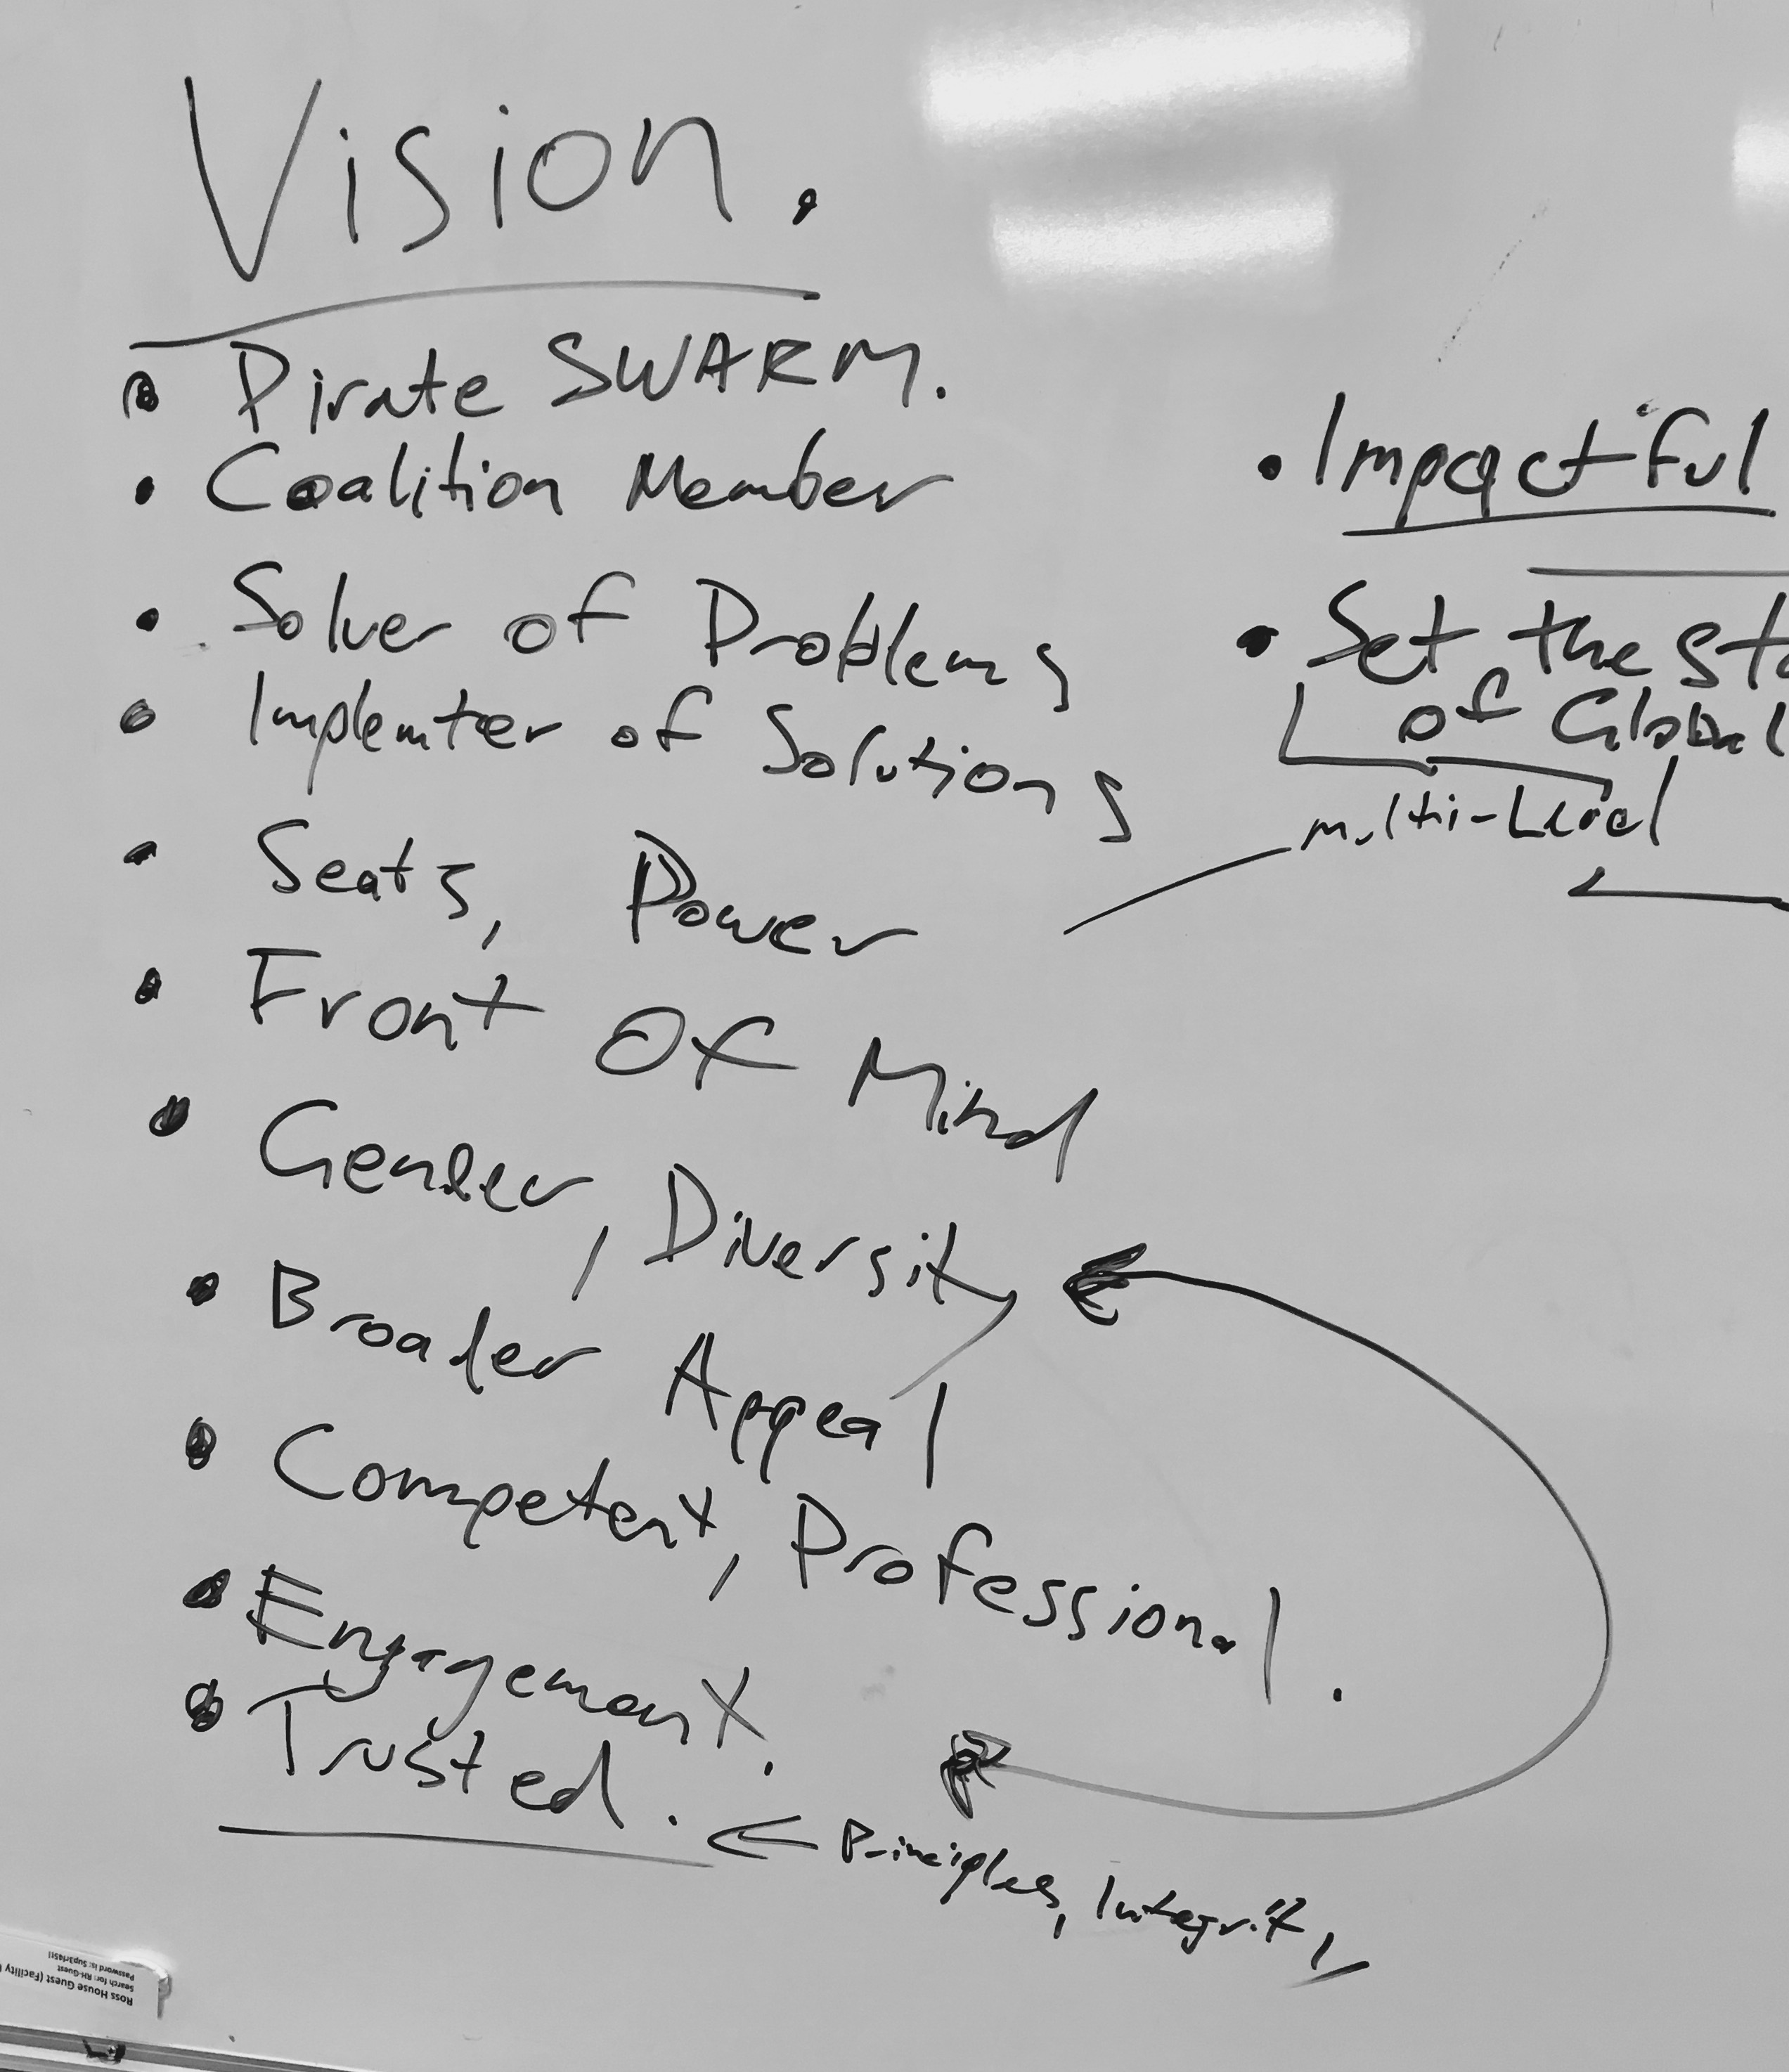 Vision.
• Pirate SWARM.
• Coalition Member
• Solver of Problems
• Implemter of Solutions
• Seats, Power
• Front Of Mind
• Gender, Diversity
• Broader Appeal
• Competent, Professional.
• Engagement.
• Trusted.
Principles, Integrity
• Impactful
• Set the sta
of Global
multi-Level
Ross House Guest (Facility
Search for: RH-Guest